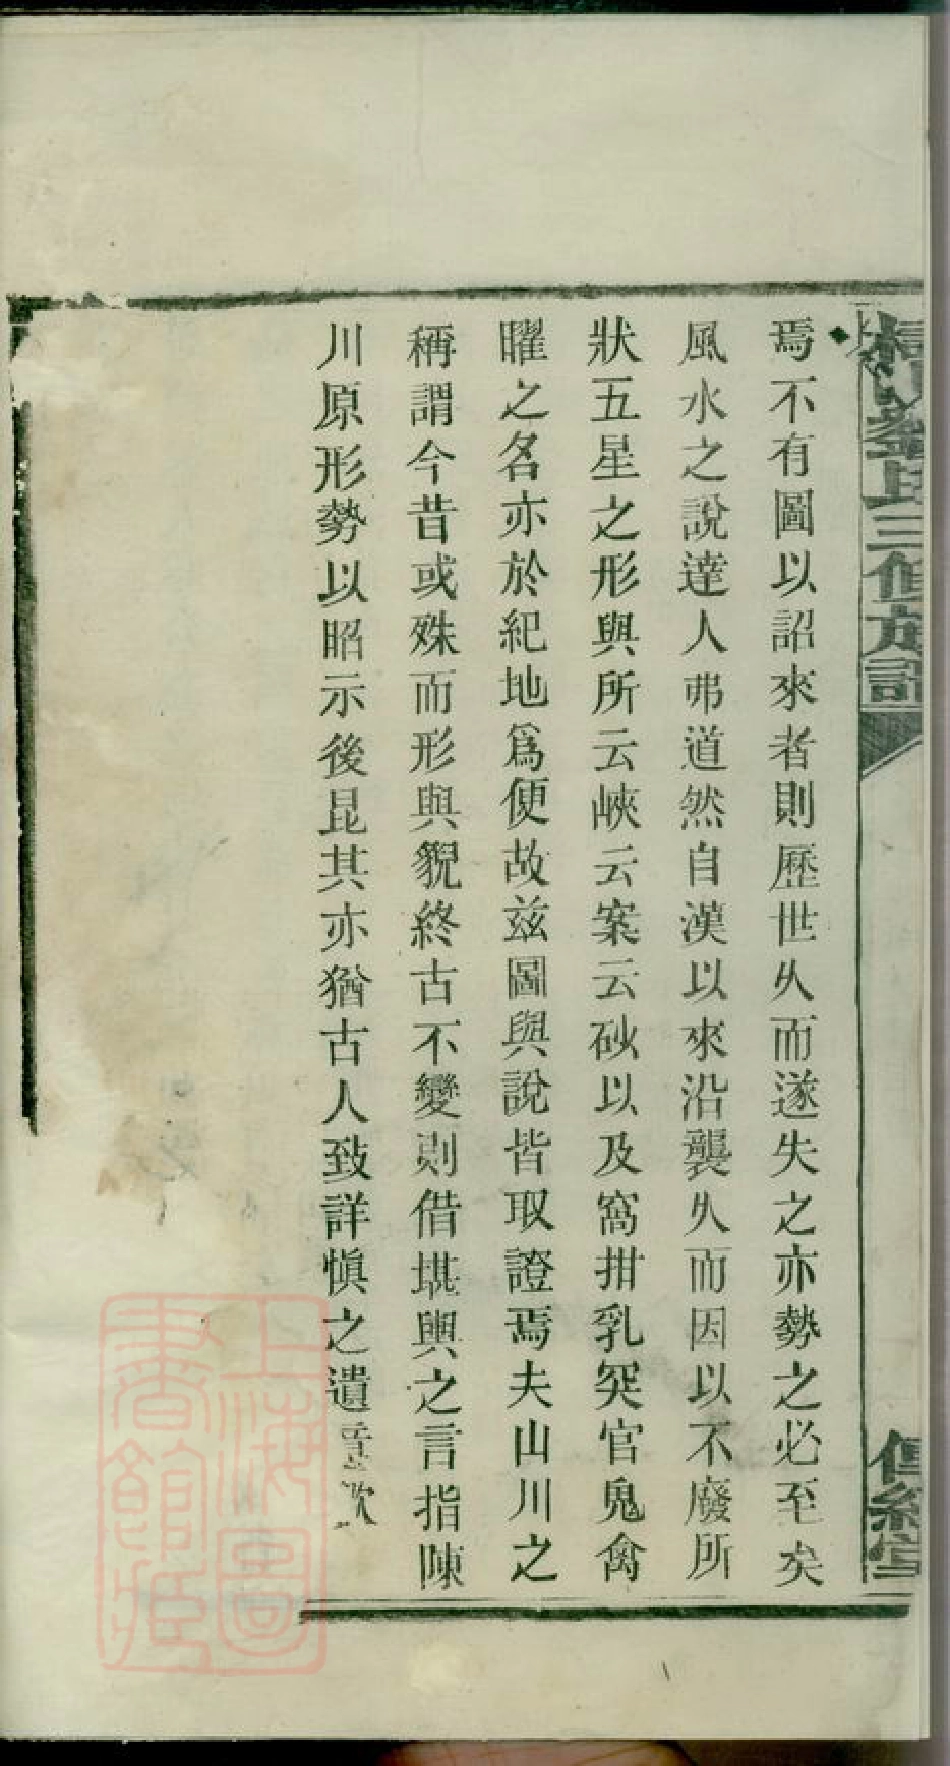 劉氏三修族譜
焉不有圖以詔來者則歷世久而遂失之亦勢之必至矣
風水之說達人弗道然自漢以來沿襲久而因以不廢所
狀五星之形與所云峽云案云砂以及窩拑乳突官鬼禽
曜之名亦於紀地爲便故兹圖與說皆取證焉夫山川之
稱謂今昔或殊而形與貌終古不變則借堪輿之言指陳
川原形勢以昭示後昆其亦猶古人致詳愼之遺意歟
上海圖
書館藏